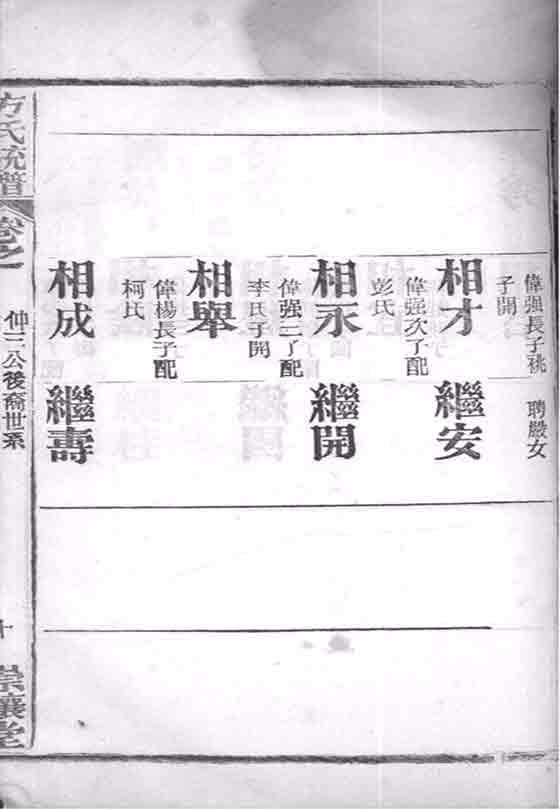 偉强長子祧
子開
聘嚴女
相才
繼安
偉强次子配
彭氏
相永
繼開
偉强三子配
李氏子開
相舉
偉楊長子配
柯氏
相成
繼壽
方氏統譜
卷之一
仲三公後裔世系
十
崇讓堂